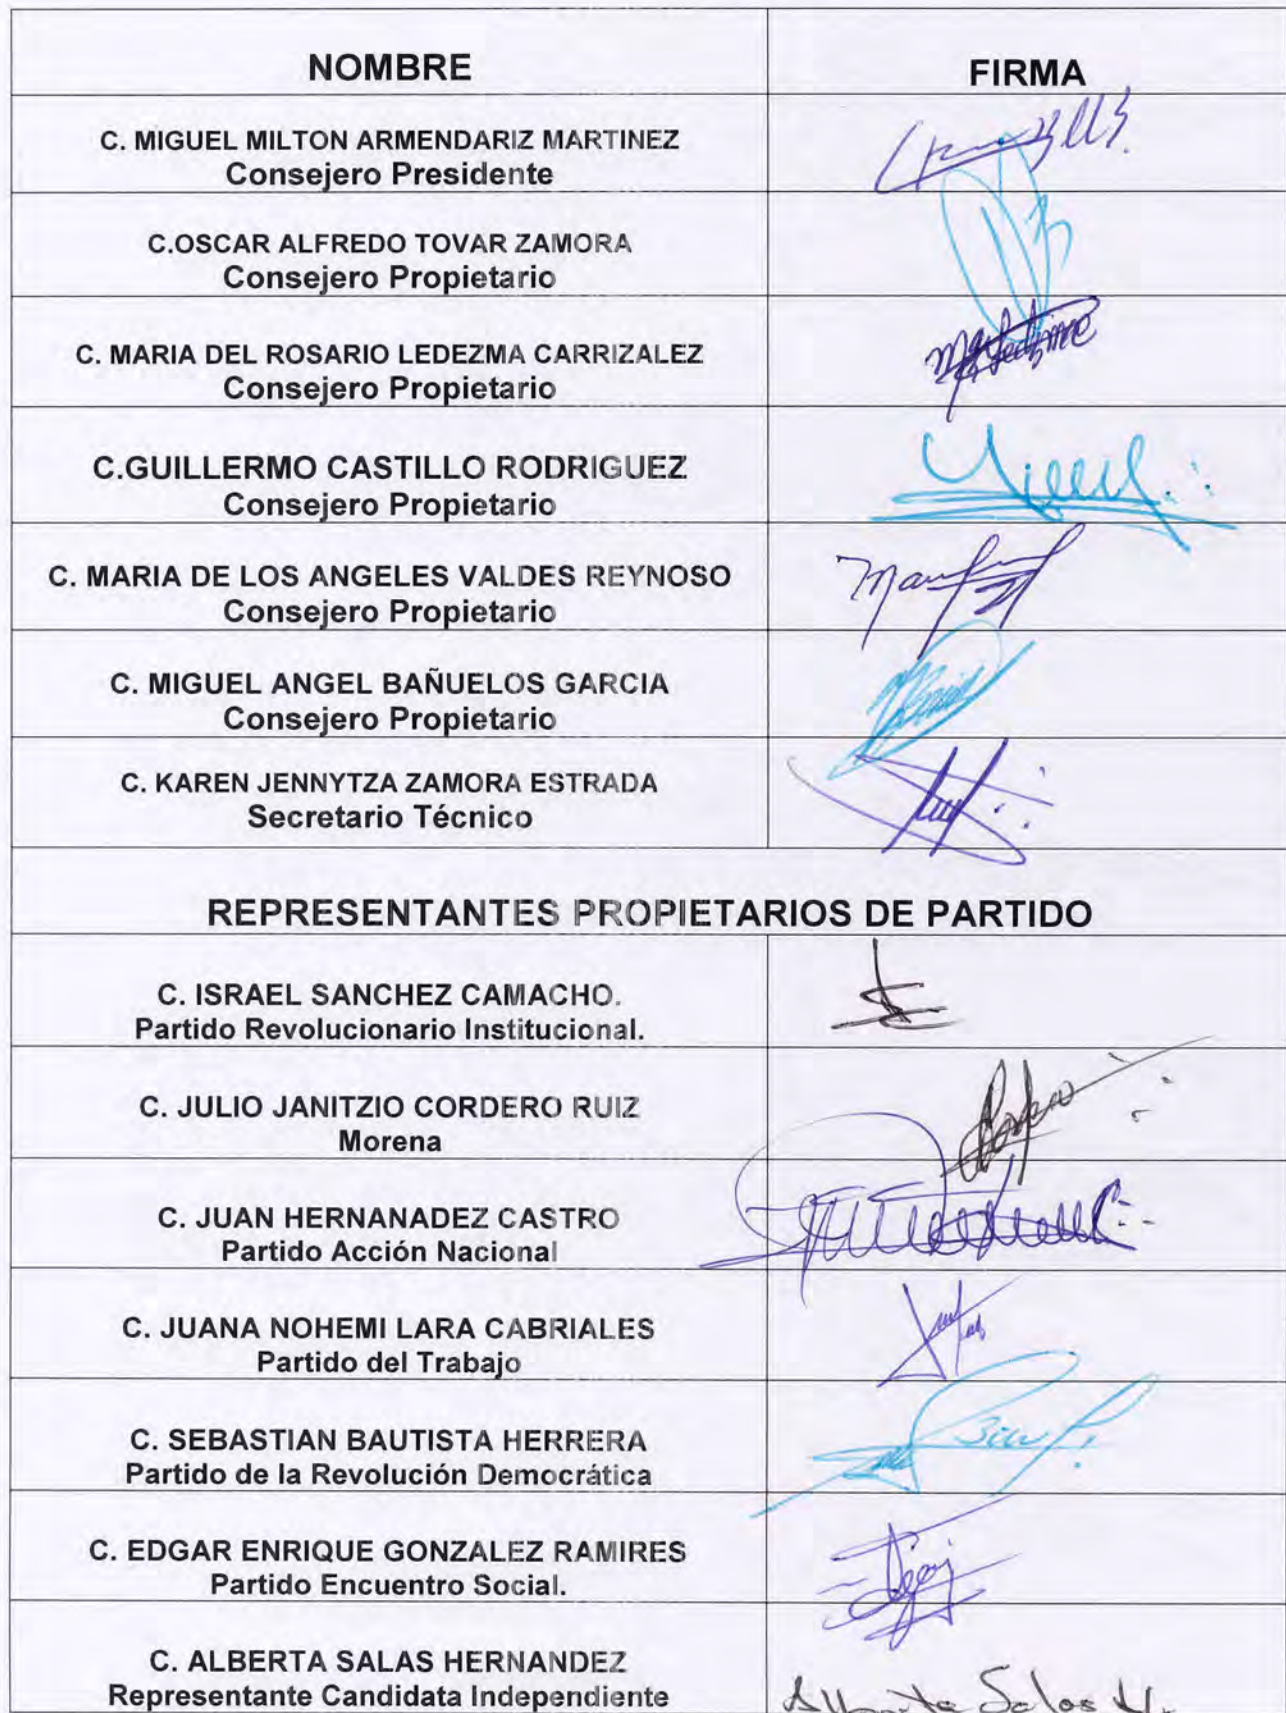 NOMBRE
FIRMA
C. MIGUEL MILTON ARMENDARIZ MARTINEZ
Consejero Presidente
C.OSCAR ALFREDO TOVAR ZAMORA
Consejero Propietario
C. MARIA DEL ROSARIO LEDEZMA CARRIZALEZ
Consejero Propietario
C.GUILLERMO CASTILLO RODRIGUEZ
Consejero Propietario
C. MARIA DE LOS ANGELES VALDES REYNOSO
Consejero Propietario
C. MIGUEL ANGEL BAÑUELOS GARCIA
Consejero Propietario
C. KAREN JENNYTZA ZAMORA ESTRADA
Secretario Técnico
REPRESENTANTES PROPIETARIOS DE PARTIDO
C. ISRAEL SANCHEZ CAMACHO.
Partido Revolucionario Institucional.
C. JULIO JANITZIO CORDERO RUIZ
Morena
C. JUAN HERNANADEZ CASTRO
Partido Acción Nacional
C. JUANA NOHEMI LARA CABRIALES
Partido del Trabajo
C. SEBASTIAN BAUTISTA HERRERA
Partido de la Revolución Democrática
C. EDGAR ENRIQUE GONZALEZ RAMIRES
Partido Encuentro Social.
C. ALBERTA SALAS HERNANDEZ
Representante Candidata Independiente
Alberta Salas H.